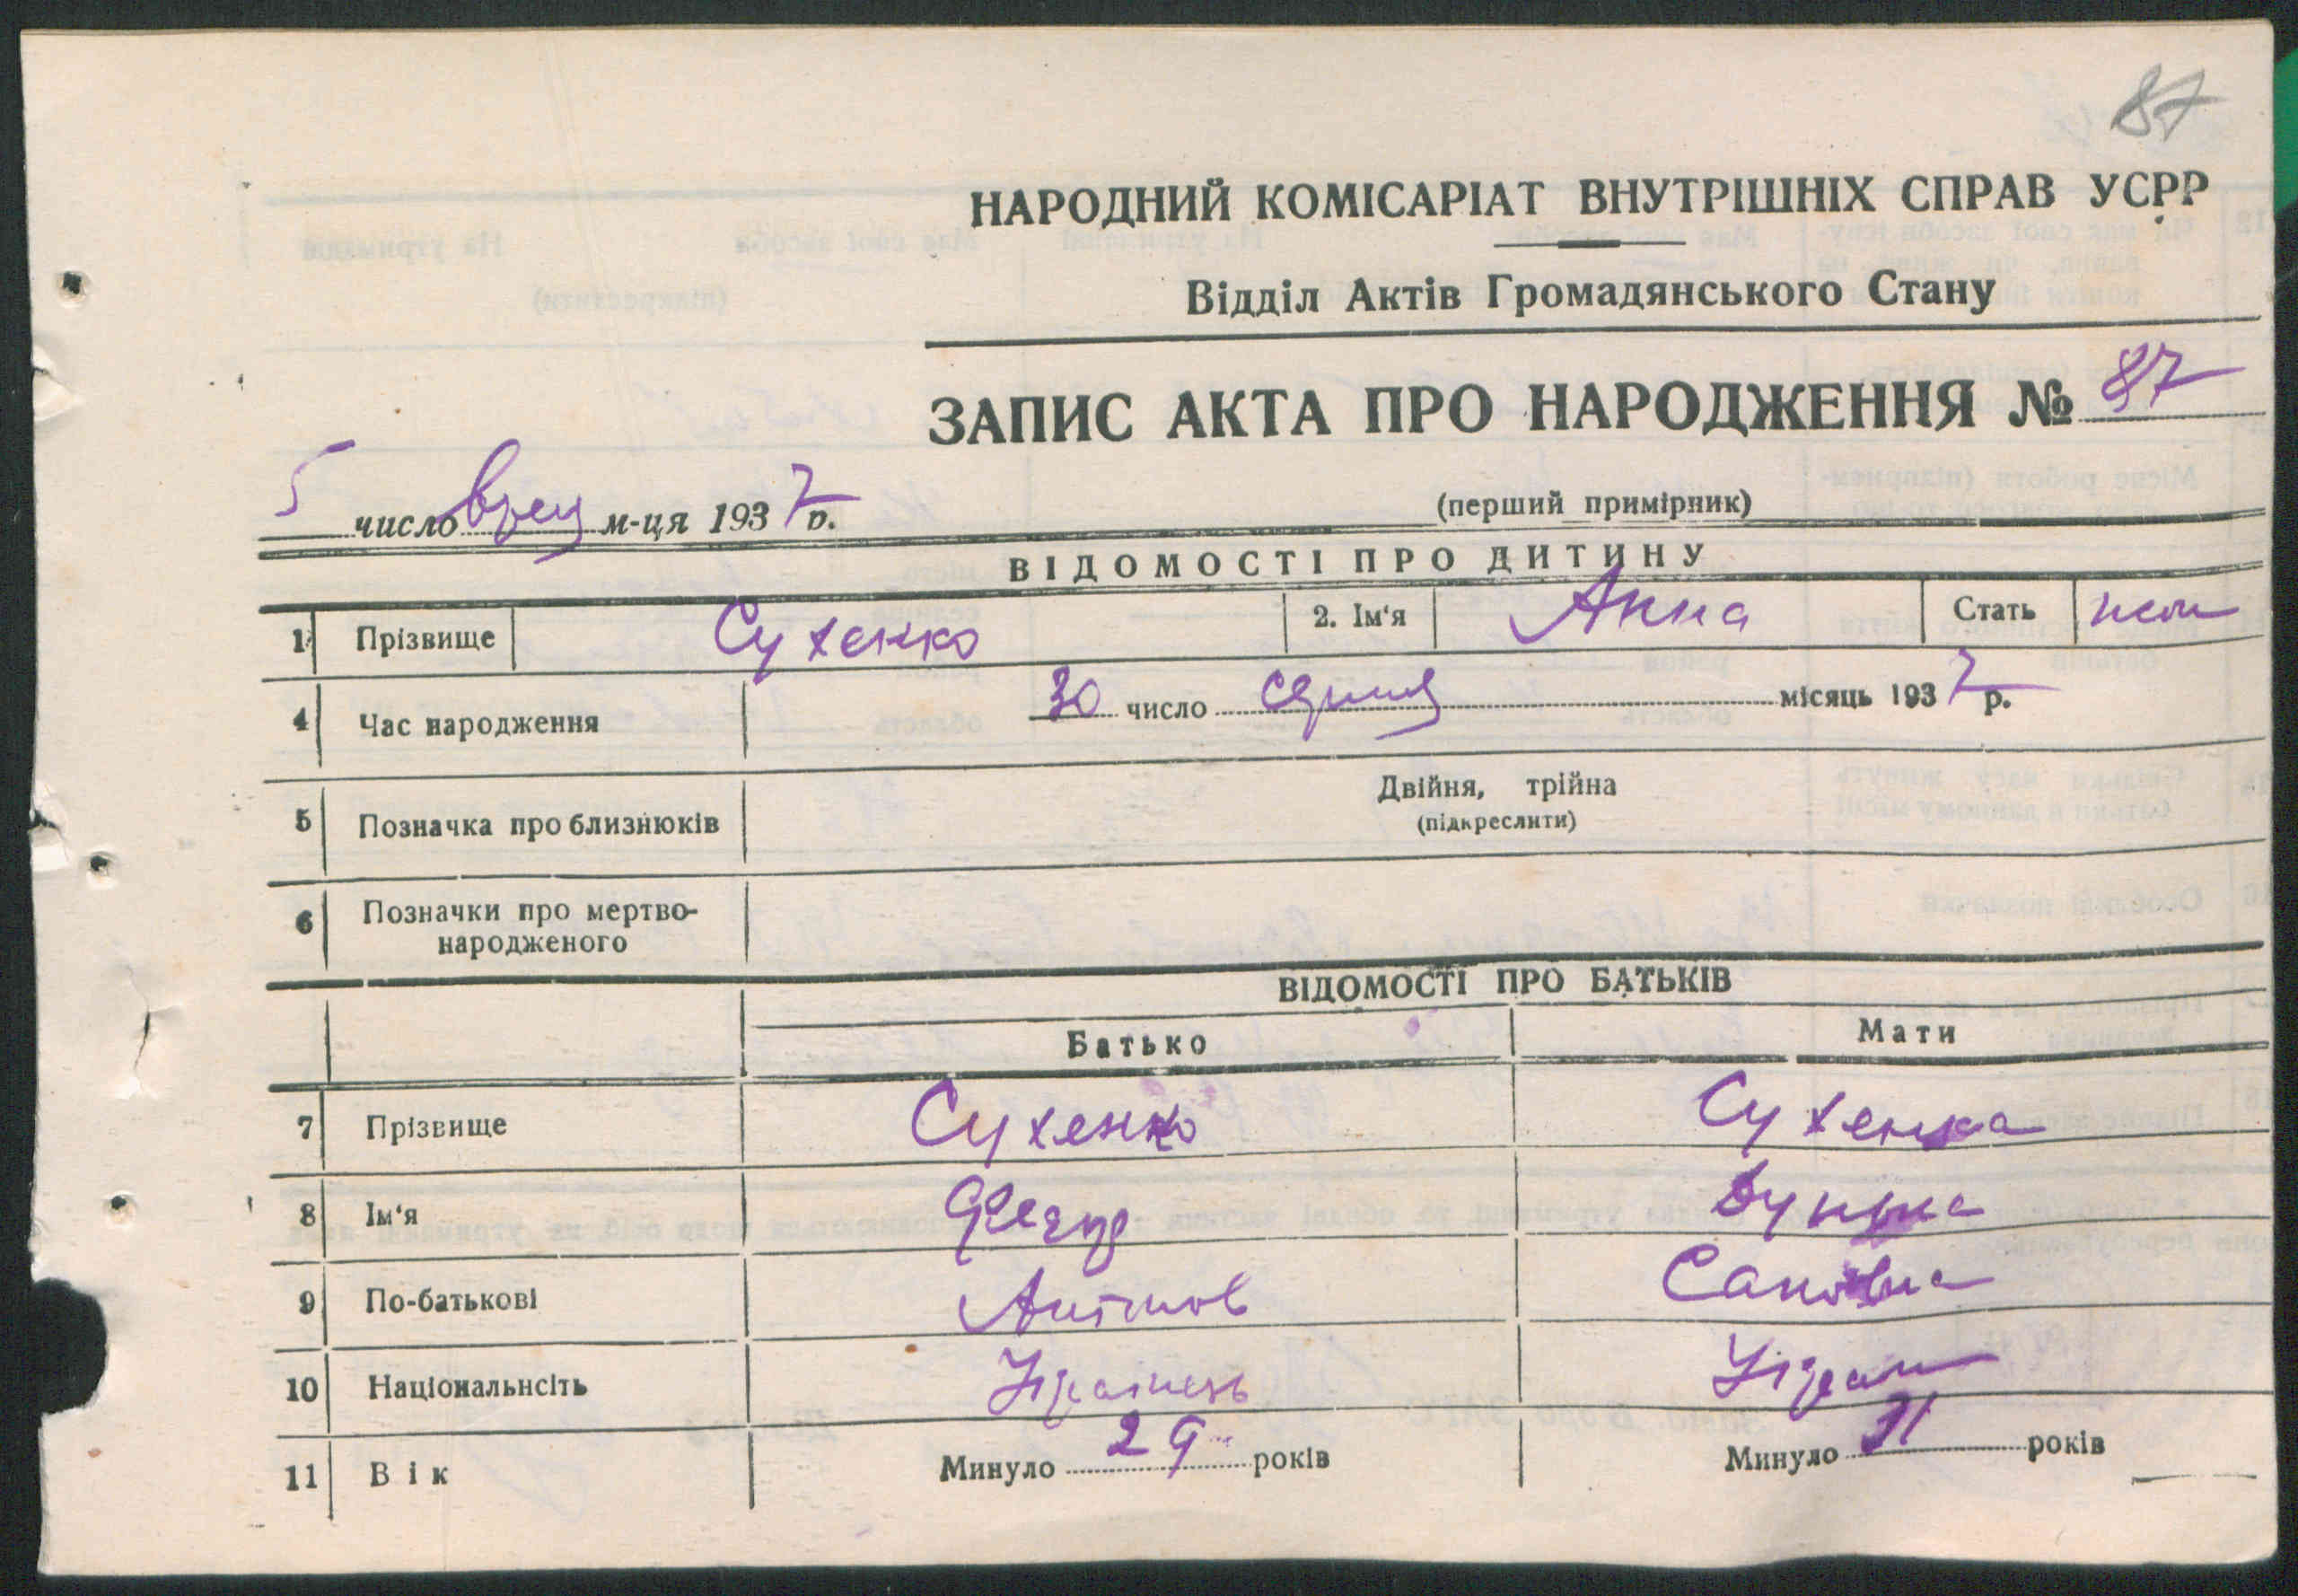 87
НАРОДНИЙ КОМІСАРІАТ ВНУТРІШНІХ СПРАВ УСРР
Відділ Актів Громадянського Стану
ЗАПИС АКТА ПРО НАРОДЖЕННЯ № 87
5 число м-ця 1937 р.
(перший примірник)
ВІДОМОСТІ ПРО ДИТИНУ
1 Прізвище Сухенко 2. Ім'я Анна Стать
4 Час народження 30 число серпня місяць 1937 р.
5 Позначка про близнюків Двійня, трійна
(підкреслити)
6 Позначки про мертво-
народженого
ВІДОМОСТІ ПРО БАТЬКІВ
Батько Мати
7 Прізвище Сухенко Сухенка
8 Ім'я
9 По-батькові Антонов
10 Національнсіть Українець Украін
11 Вік Минуло 29 років Минуло 31 років